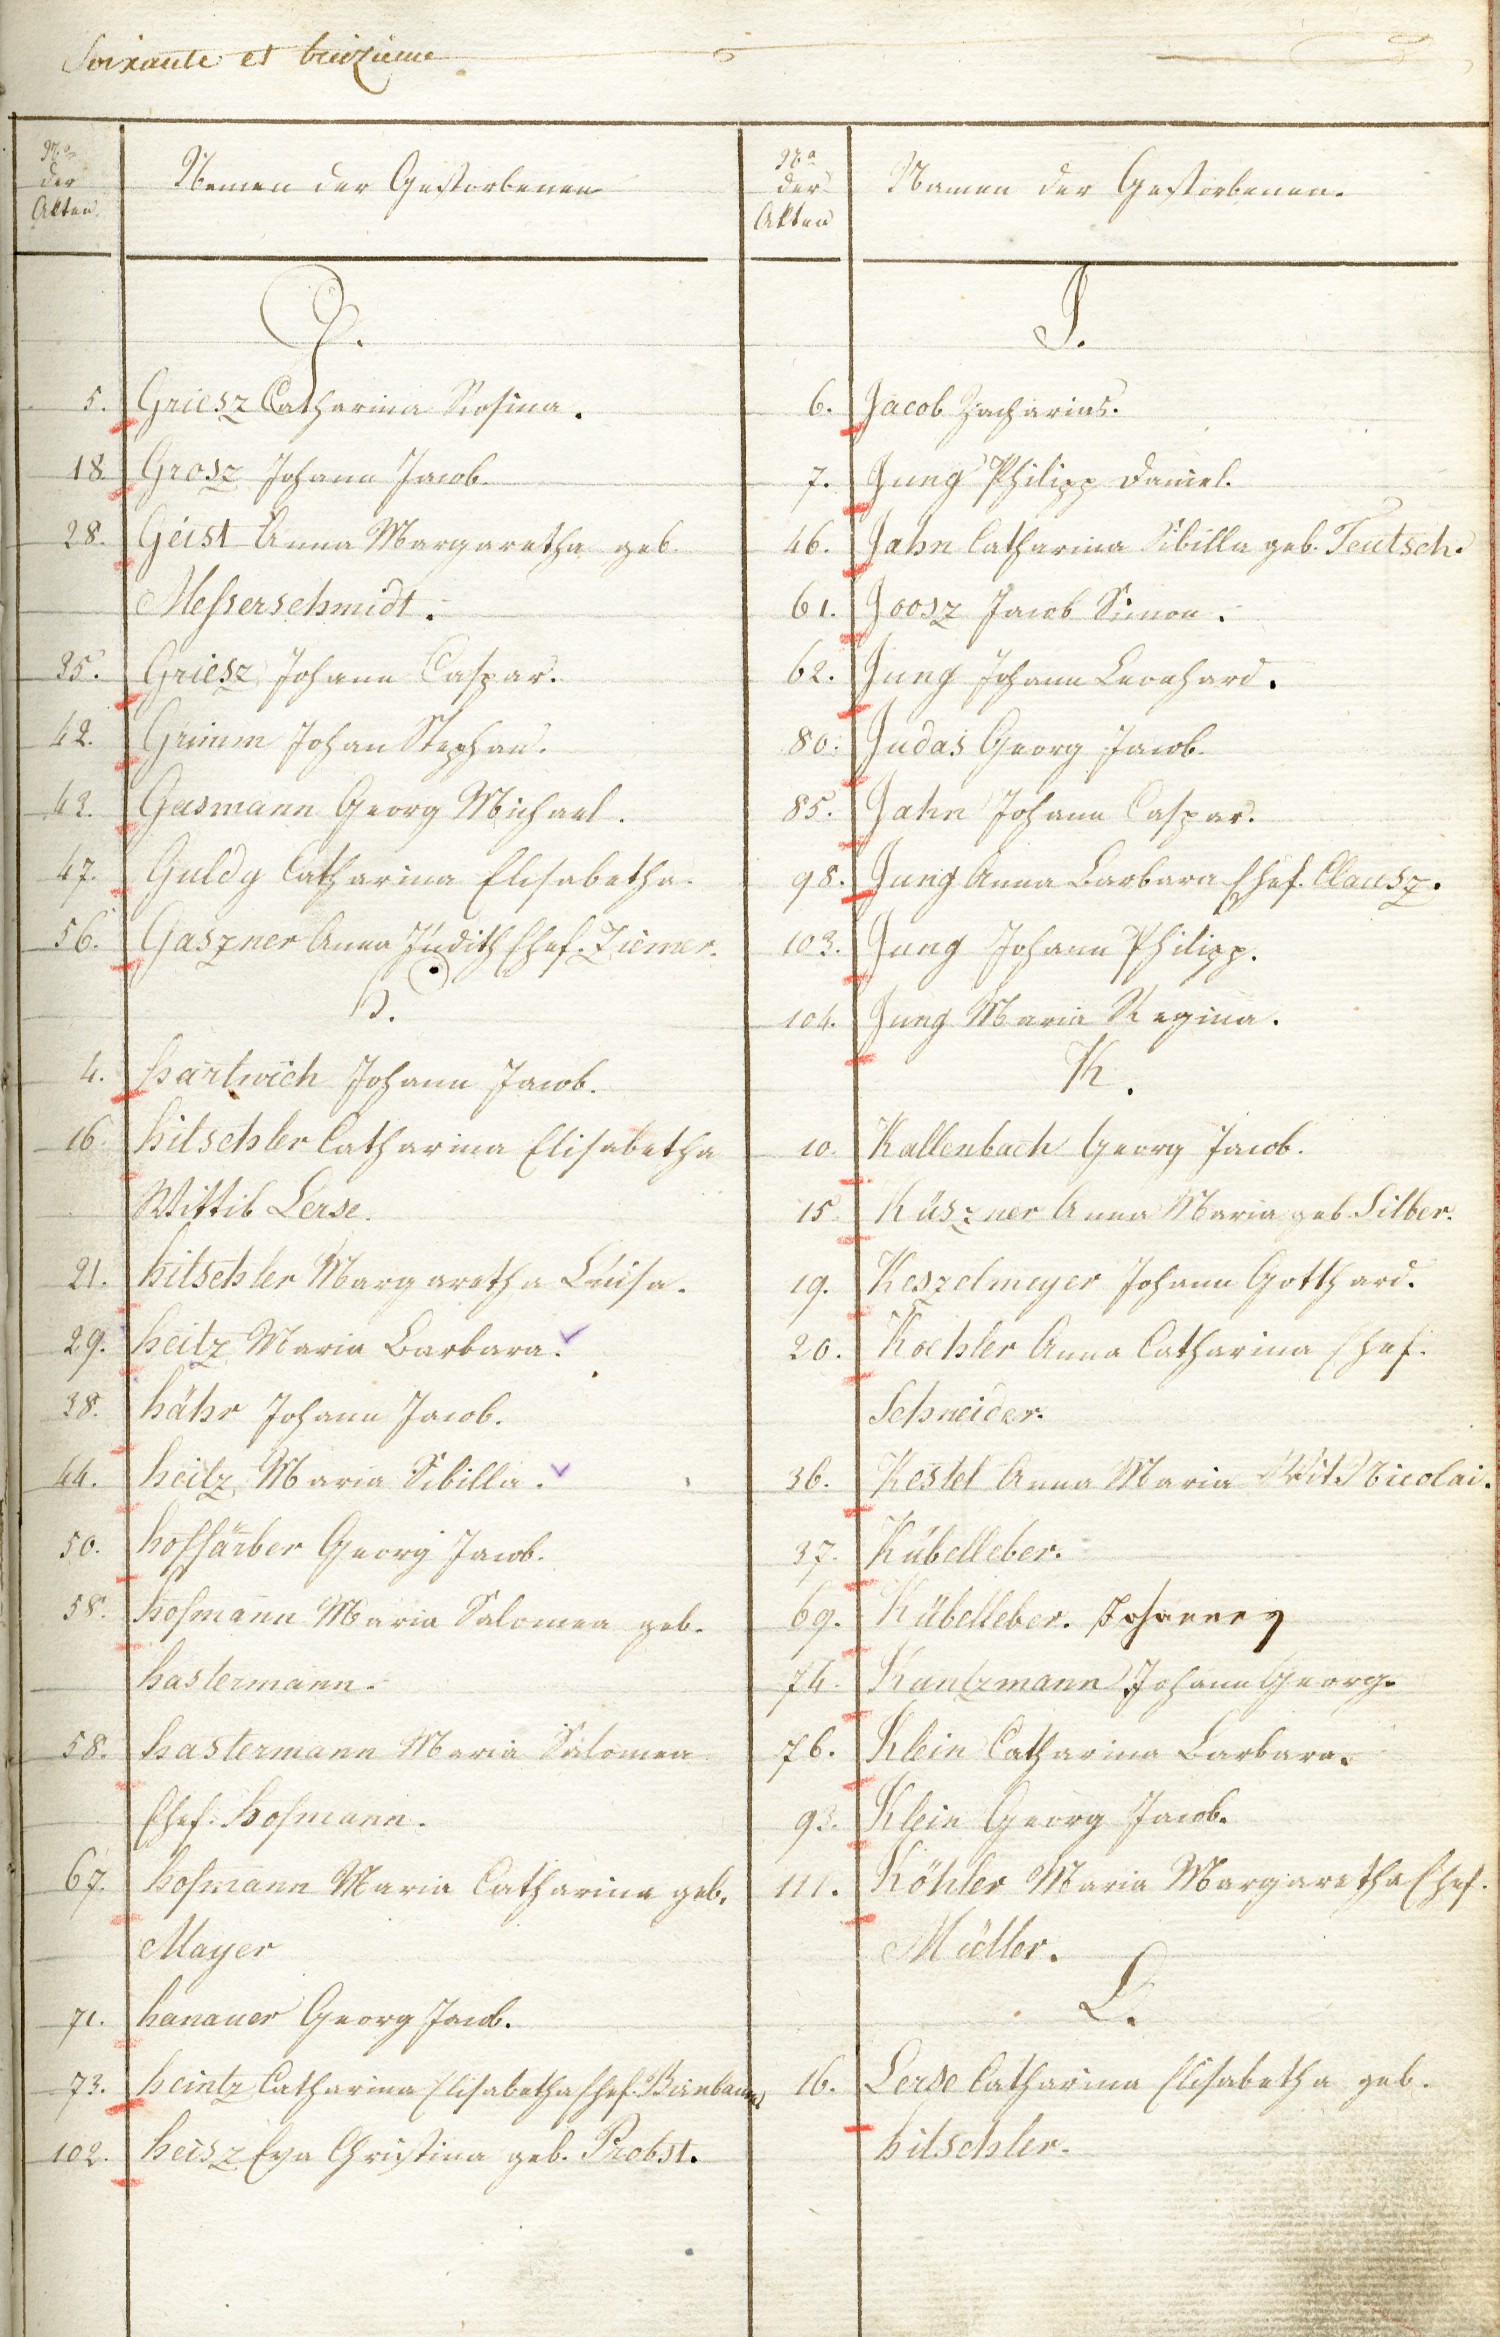 Soixante et treizième
No
der
Akten.
Namen der Gestorbenen
G.
5. Griesz Catharina Rosina.
18. Grosz Johann Jacob.
28. Geist Anna Margaretha geb.
Messerschmidt.
35. Griesz Johann Caspar.
42. Grimm Johan Stephan.
43. Gasmann Georg Michael.
47. Guldy Catharina Elisabetha.
56. Gaszner Anna Judith Ehef. Ziemer.
H.
4. Hartwich Johann Jacob.
16. Hitschler Catharina Elisabetha
Wittib Lerse.
21. Hitschler Margaretha Luisa.
29. Heitz Maria Barbara.
38. Hähr Johann Jacob.
44. Heitz Maria Sibilla.
50. Hoffärber Georg Jacob.
58. Hofmann Maria Salomea geb.
Hastermann.
58. Hastermann Maria Salomea
Ehef. Hofmann.
67. Hofmann Maria Catharina geb.
Mayer
71. Hanauer Georg Jacob.
73. Heintz Catharina Elisabetha Ehef. Birnbaum
102. Heisz Eva Christina geb. Probst.
No
der
Akten
Namen der Gestorbenen.
J.
6. Jacob Zacharias.
7. Jung Philipp Daniel.
46. Jahn Catharina Sibilla geb. Teutsch.
61. Joosz Jacob Simon.
62. Jung Johann Leonhard.
80. Judas Georg Jacob.
85. Jahn Johann Caspar.
98. Jung Anna Barbara Ehef. Clausz.
103. Jung Johann Philipp.
104. Jung Maria Regina.
K.
10. Kallenbach Georg Jacob.
15. Küszner Anna Maria geb. Silber.
19. Keszelmeyer Johann Gotthard.
20. Koehler Anna Catharina Ehef.
Schneider.
36. Kestel Anna Maria Wit. Nicolai.
37. Kübelleber.
69. Kübelleber. Johannes
74. Kuntzmann Johann Georg.
76. Klein Catharina Barbara.
93. Klein Georg Jacob.
111. Köhler Maria Margaretha Ehef.
Müller.
L.
16. Lerse Catharina Elisabetha geb.
Hitschler.